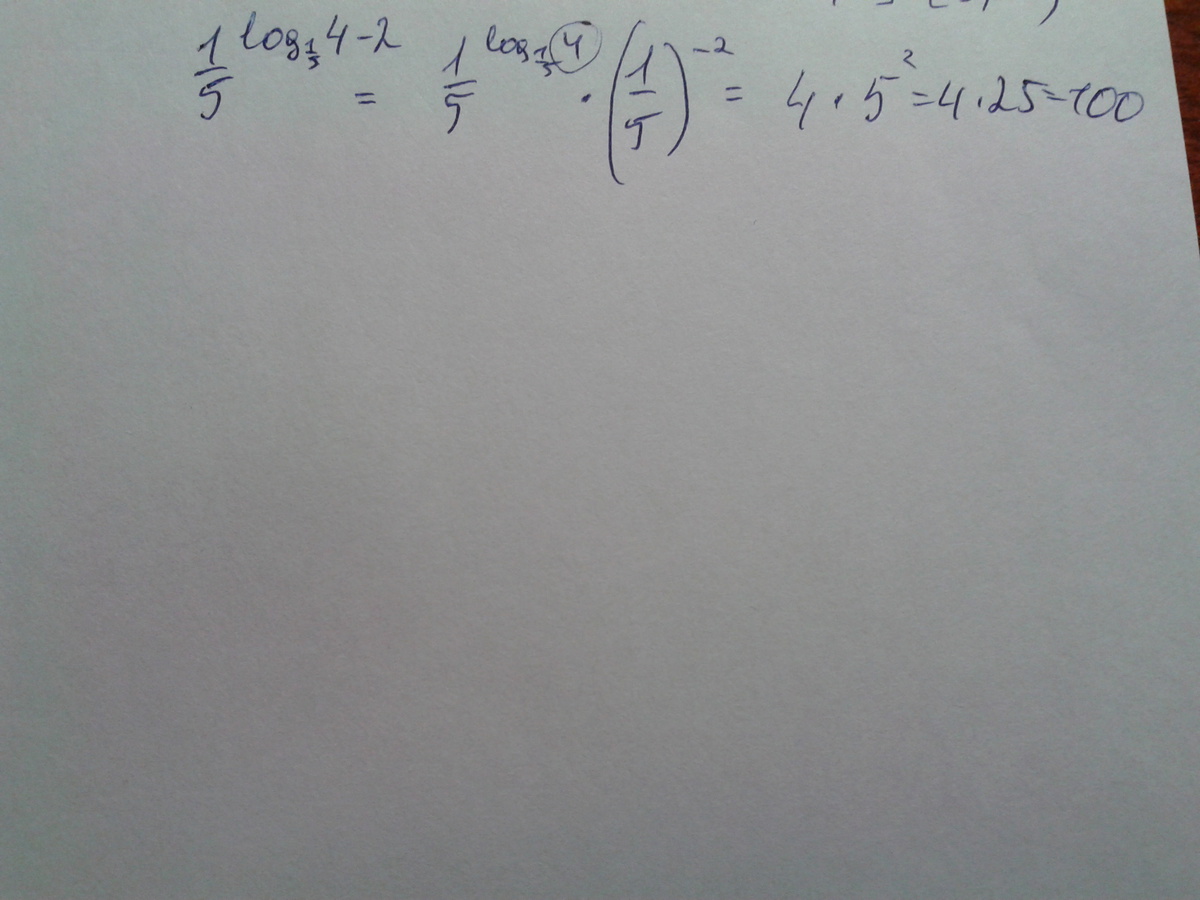 1/5^(log_{1/5} 4-2) = 1/5^(log_{1/5} 4) · (1/5)^-2 = 4 · 5^2 = 4 · 25 = 100